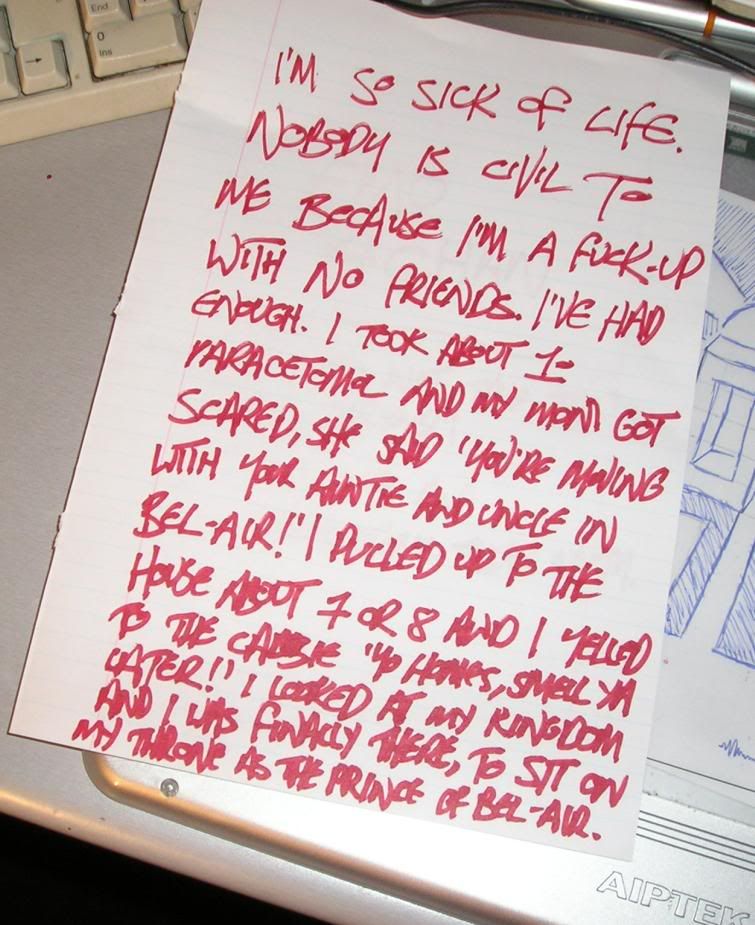 End
0
Ins
I'M SO SICK OF LIFE.
NOBODY IS CIVIL TO
ME BECAUSE I'M A FUCK-UP
WITH NO FRIENDS. I'VE HAD
ENOUGH. I TOOK ABOUT 10
PARACETOMOL AND MY MOM GOT
SCARED, SHE SAID 'YOU'RE MOVING
WITH YOUR AUNTIE AND UNCLE IN
BEL-AIR!' I PULLED UP TO THE
HOUSE ABOUT 7 OR 8 AND I YELLED
TO THE CABBIE 'YO HOMES, SMELL YA
LATER!' I LOOKED AT MY KINGDOM
AND I WAS FINALLY THERE, TO SIT ON
MY THRONE AS THE PRINCE OF BEL-AIR.
AIPTEK